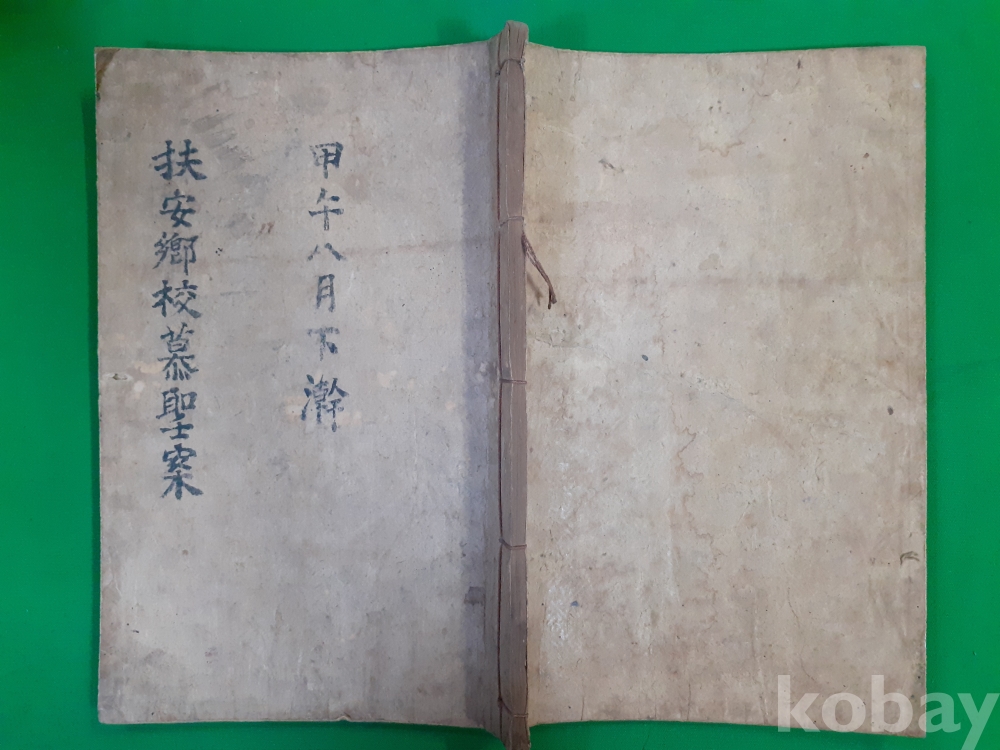 甲午八月下澣
扶安鄕校慕聖案
kobay